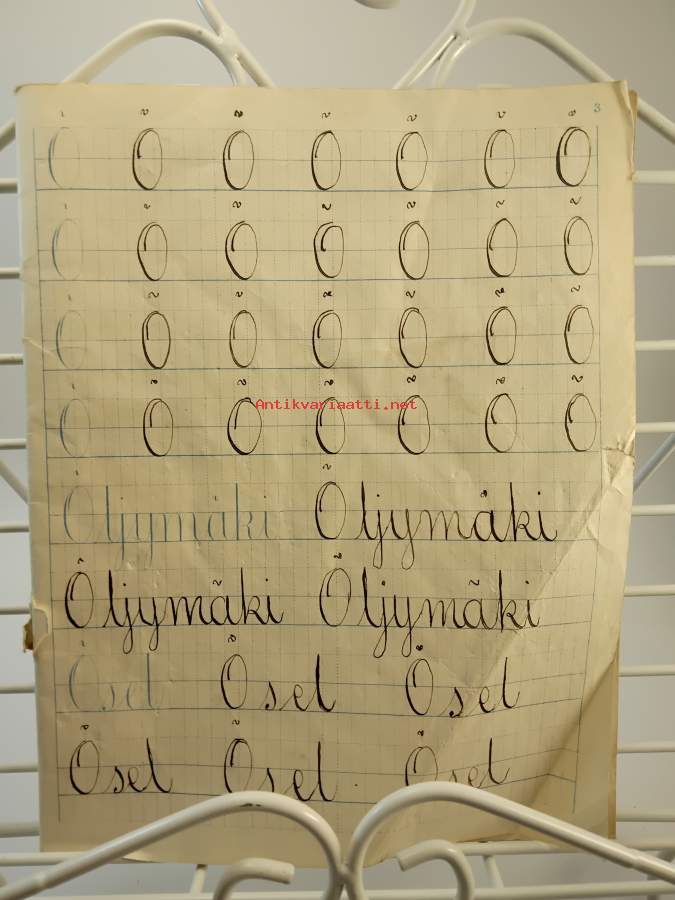 3
Ö Ö Ö Ö Ö Ö Ö
Ö Ö Ö Ö Ö Ö Ö
Ö Ö Ö Ö Ö Ö Ö
Ö Ö Ö Ö Ö Ö Ö
Antikvariaatti.net
Öljymäki Öljymäki
Öljymäki Öljymäki
Ösel Ösel Ösel
Ösel Ösel Ösel